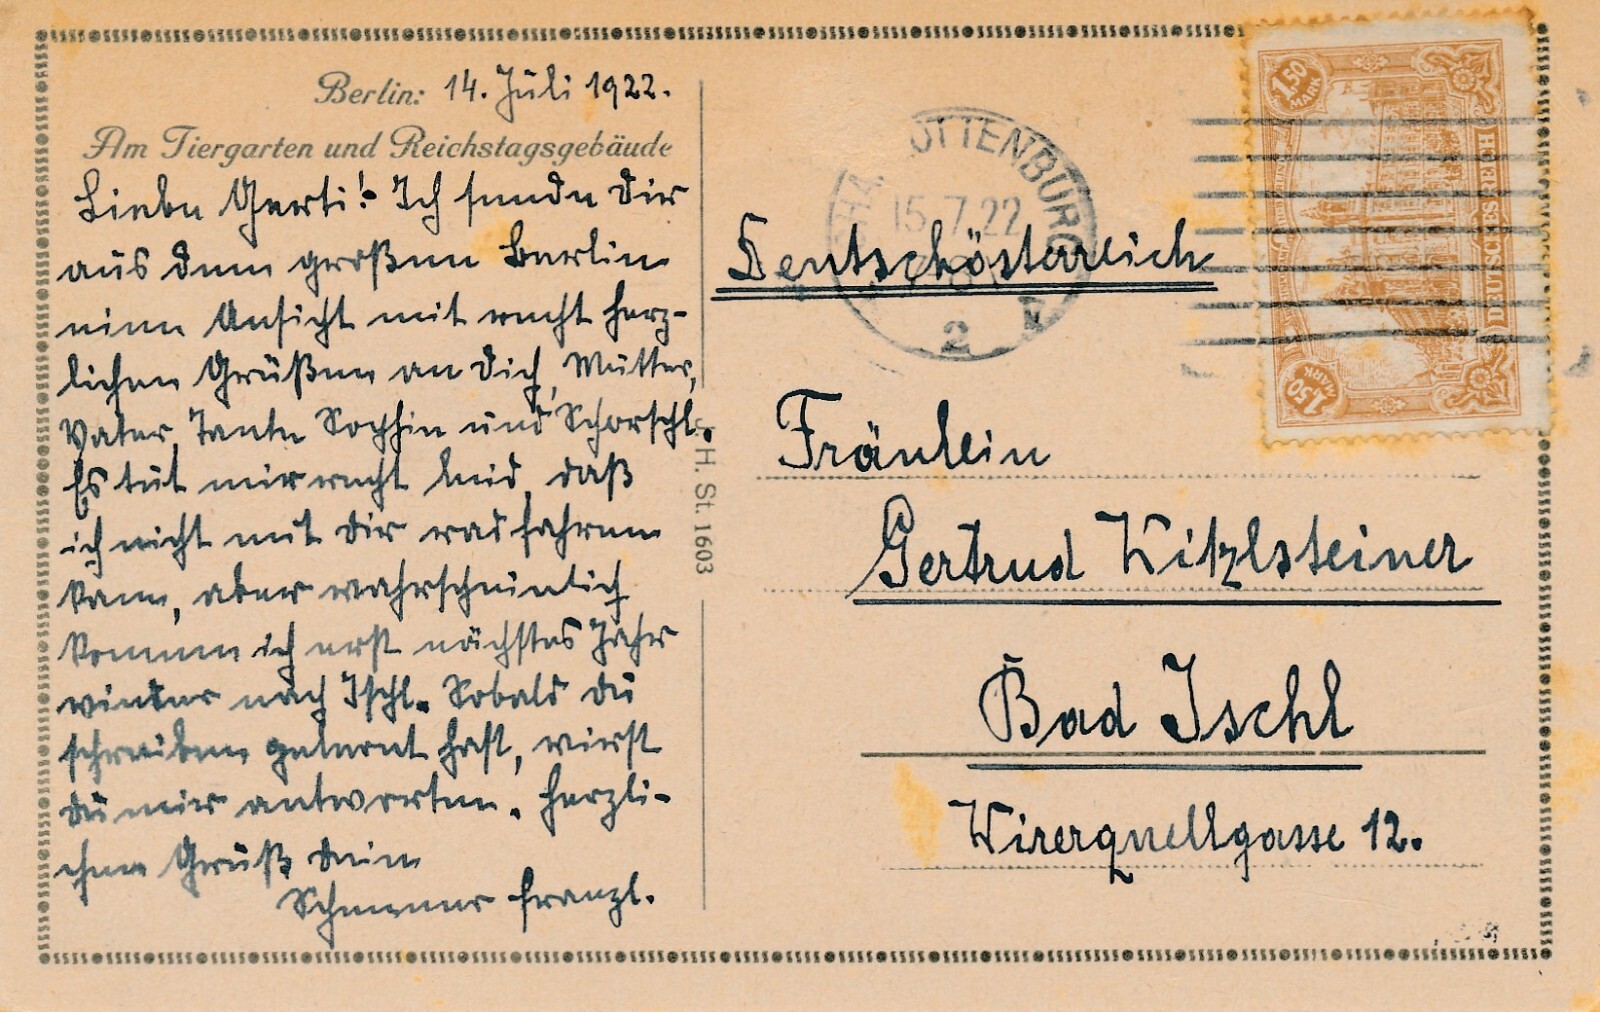 Berlin: 14. Juli 1922.
Am Tiergarten und Reichstagsgebäude
Liebe Gerti! Ich sende Dir
aus dem großen Berlin
eine Ansicht mit recht herz-
lichen Grüßen an Dich, Mutter,
Vater, Tante Sophie und Schorschl.
Es tut mir recht leid, daß
ich nicht mit Dir radfahren
kann, aber wahrscheinlich
komme ich erst nächstes Jahr
wieder nach Ischl. Sobald du
schreiben gelernt hast, wirst
du mir antworten. Herzli-
chen Gruß Dein
franzl.
H. St. 1603
OTTENBURG
15.7.22
2
1,50 MARK
DEUTSCHES REICH
1,50 MARK
Deutschösterreich
Fräulein
Gertrud Kitzlsteiner
Bad Ischl
Wirerquellgasse 12.